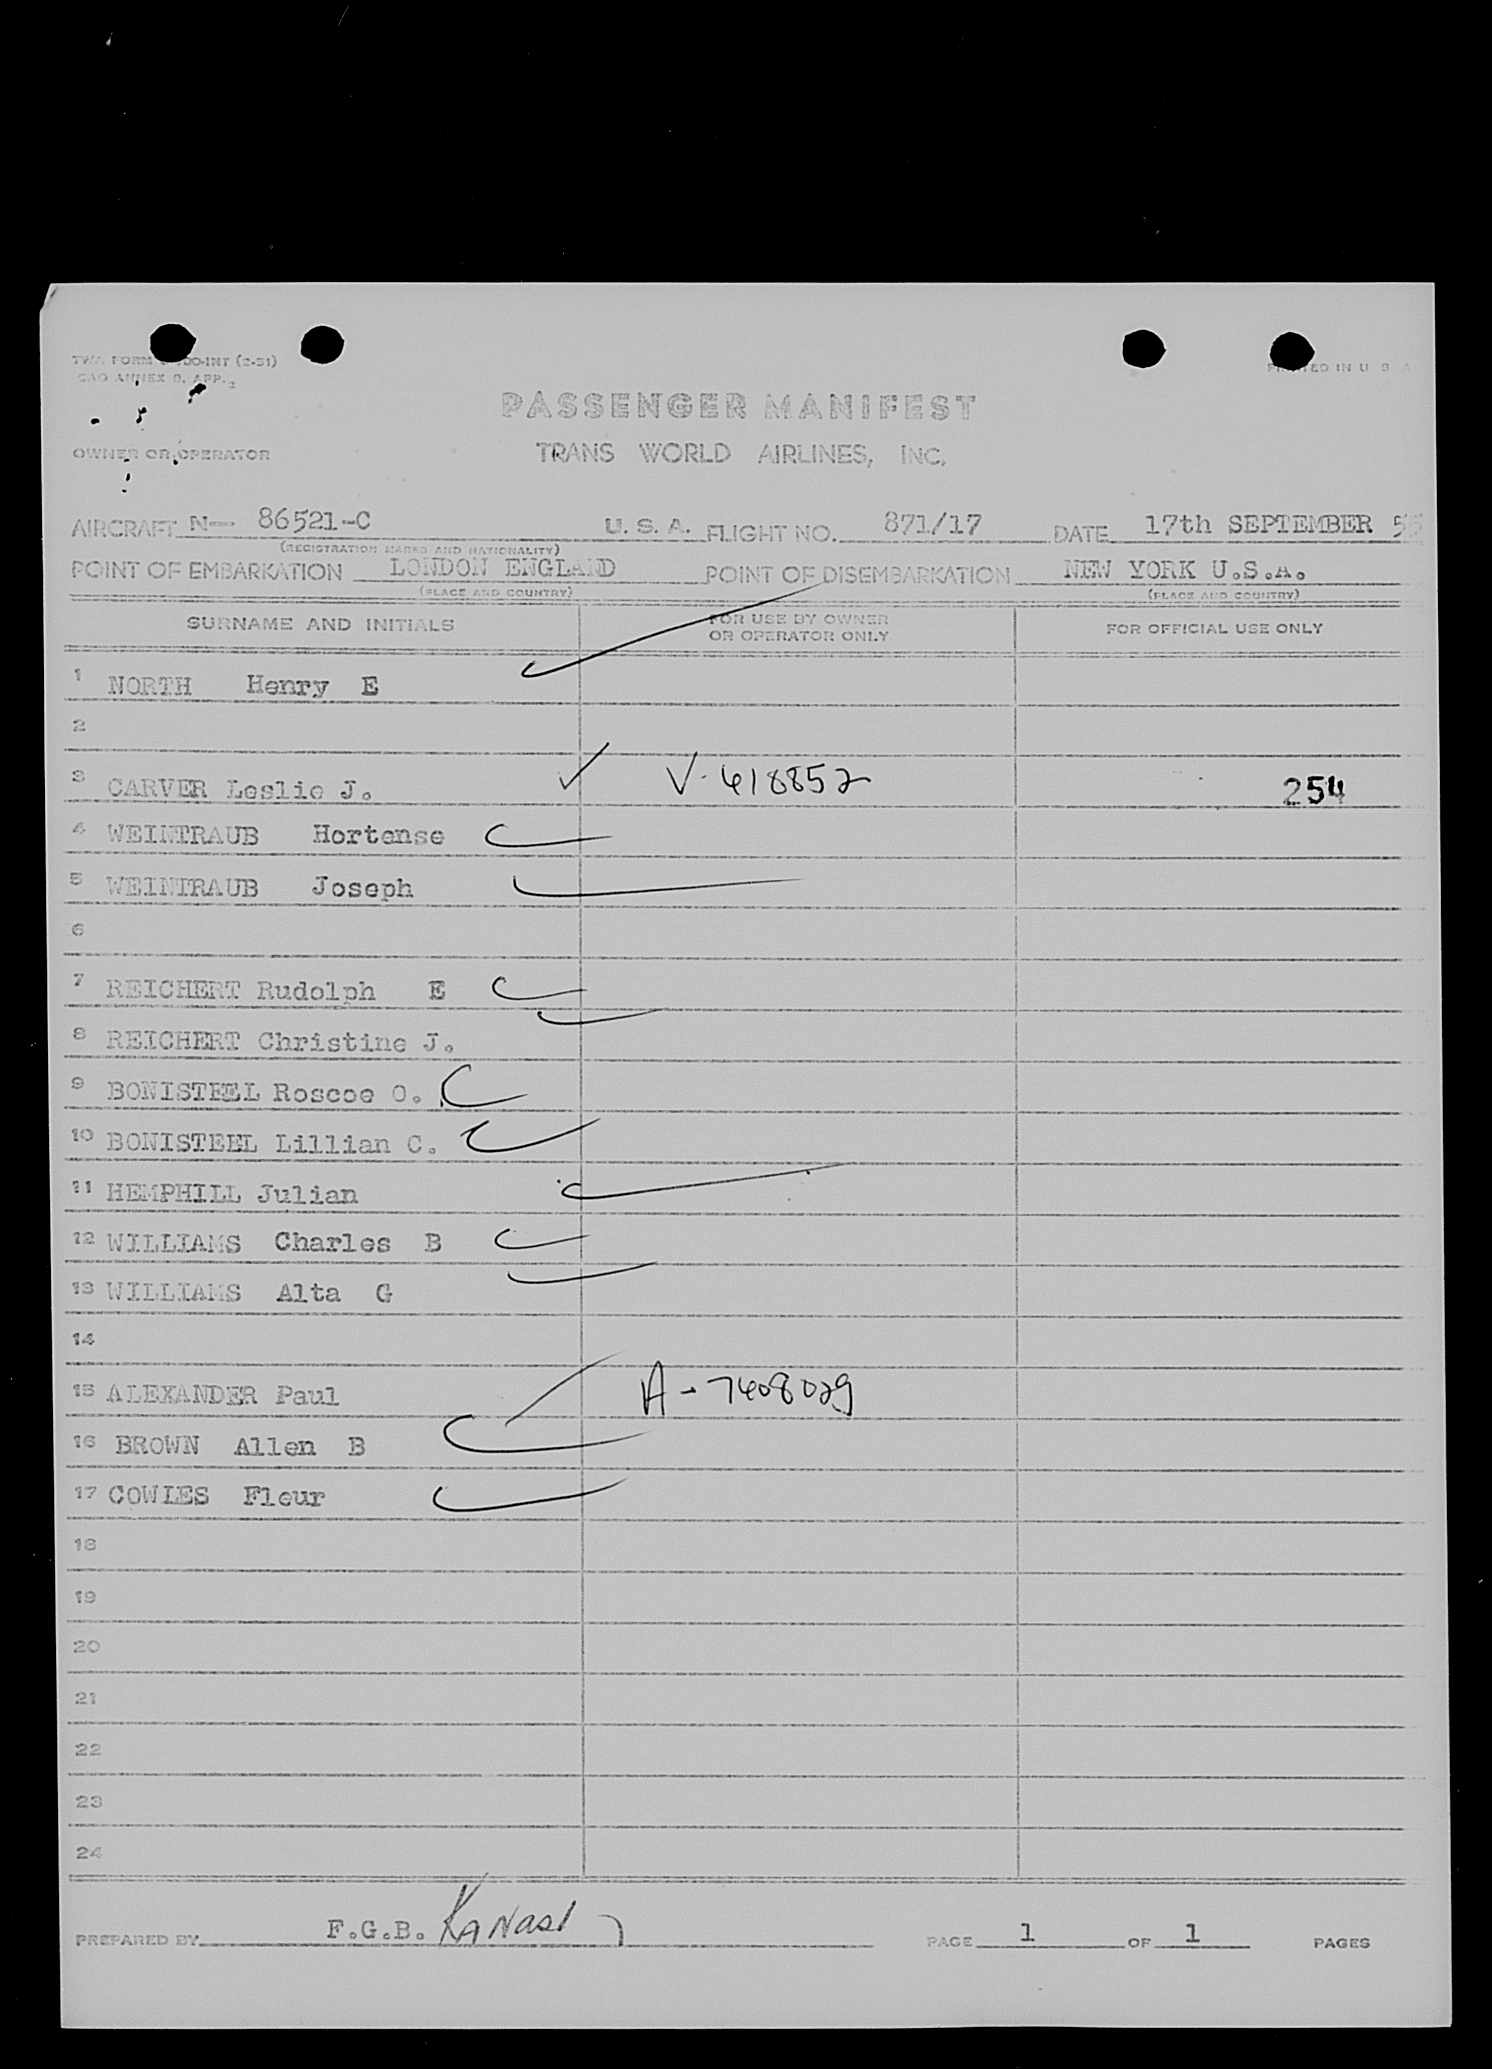 TWA FORM OO-INT (2-51)
CAO ANNEX 9, APP. 2
PRINTED IN U S A
PASSENGER MANIFEST
OWNER OR OPERATOR TRANS WORLD AIRLINES, INC.
AIRCRAFT N-- 86521-C U. S. A. FLIGHT NO. 871/17 DATE 17th SEPTEMBER 55
(REGISTRATION MARKS AND NATIONALITY)
POINT OF EMBARKATION LONDON ENGLAND POINT OF DISEMBARKATION NEW YORK U.S.A.
(PLACE AND COUNTRY) (PLACE AND COUNTRY)
SURNAME AND INITIALS FOR USE BY OWNER OR OPERATOR ONLY FOR OFFICIAL USE ONLY
1 NORTH Henry E
2
3 CARVER Leslie J. V-418852 254
4 WEINTRAUB Hortense
5 WEINTRAUB Joseph
6
7 REICHERT Rudolph E
8 REICHERT Christine J.
9 BONISTEEL Roscoe O.
10 BONISTEEL Lillian C.
11 HEMPHILL Julian
12 WILLIAMS Charles B
13 WILLIAMS Alta G
14
15 ALEXANDER Paul A-7408029
16 BROWN Allen B
17 COWLES Fleur
18
19
20
21
22
23
24
PREPARED BY F.G.B. PAGE 1 OF 1 PAGES